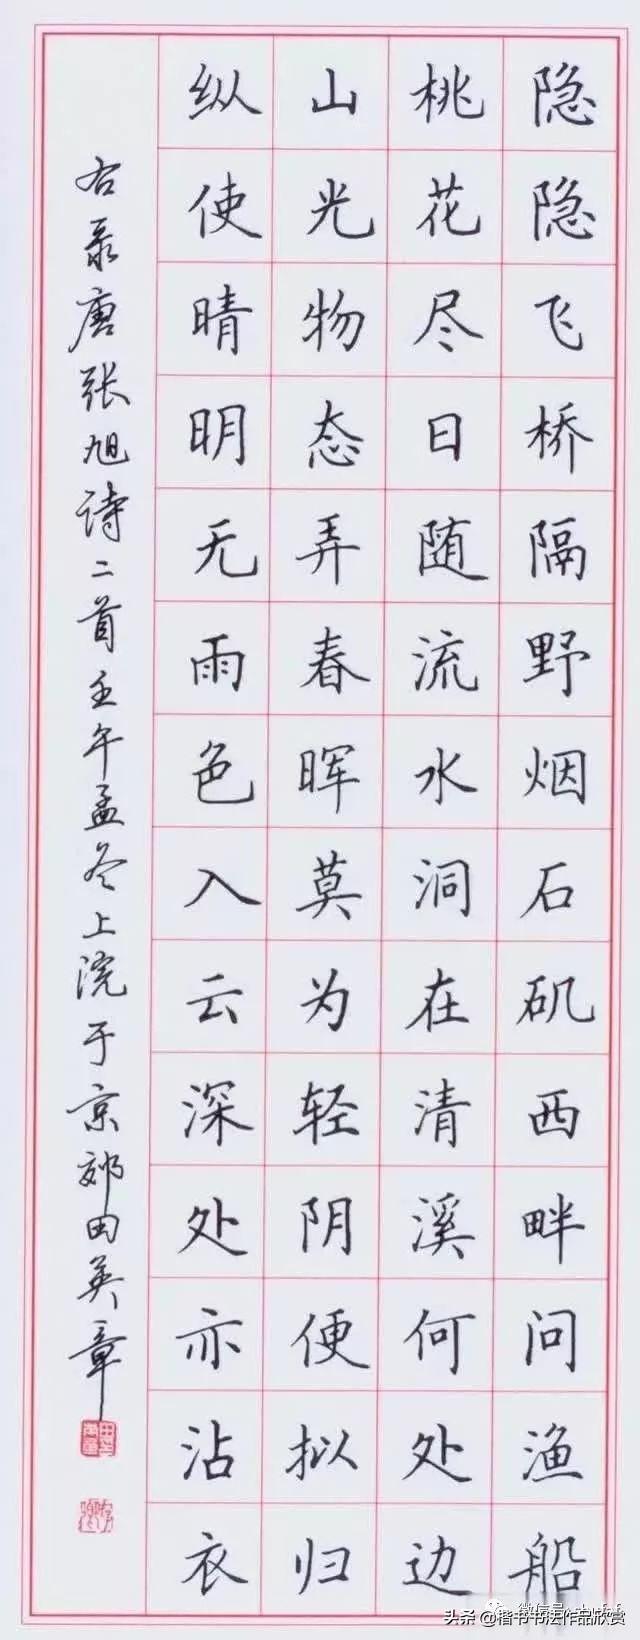 隐隐飞桥隔野烟石矶西畔问渔船
桃花尽日随流水洞在清溪何处边
山光物态弄春晖莫为轻阴便拟归
纵使晴明无雨色入云深处亦沾衣
右录唐张旭诗二首壬午孟冬上浣于京郊田英章
头条 @楷书书法作品欣赏